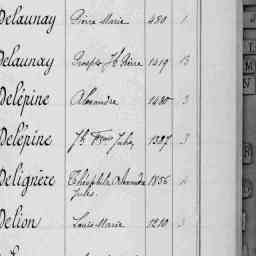 Delaunay Pierre Marie 480 1
Delaunay Prosper H. Pierre 1419 13
Delépine Alexandre 1480 3
Delépine Jh. Fçois Jules 1387 3
Delignère Théophile Alexandre 1856
Jules
Delion Louis Marie 1210 3